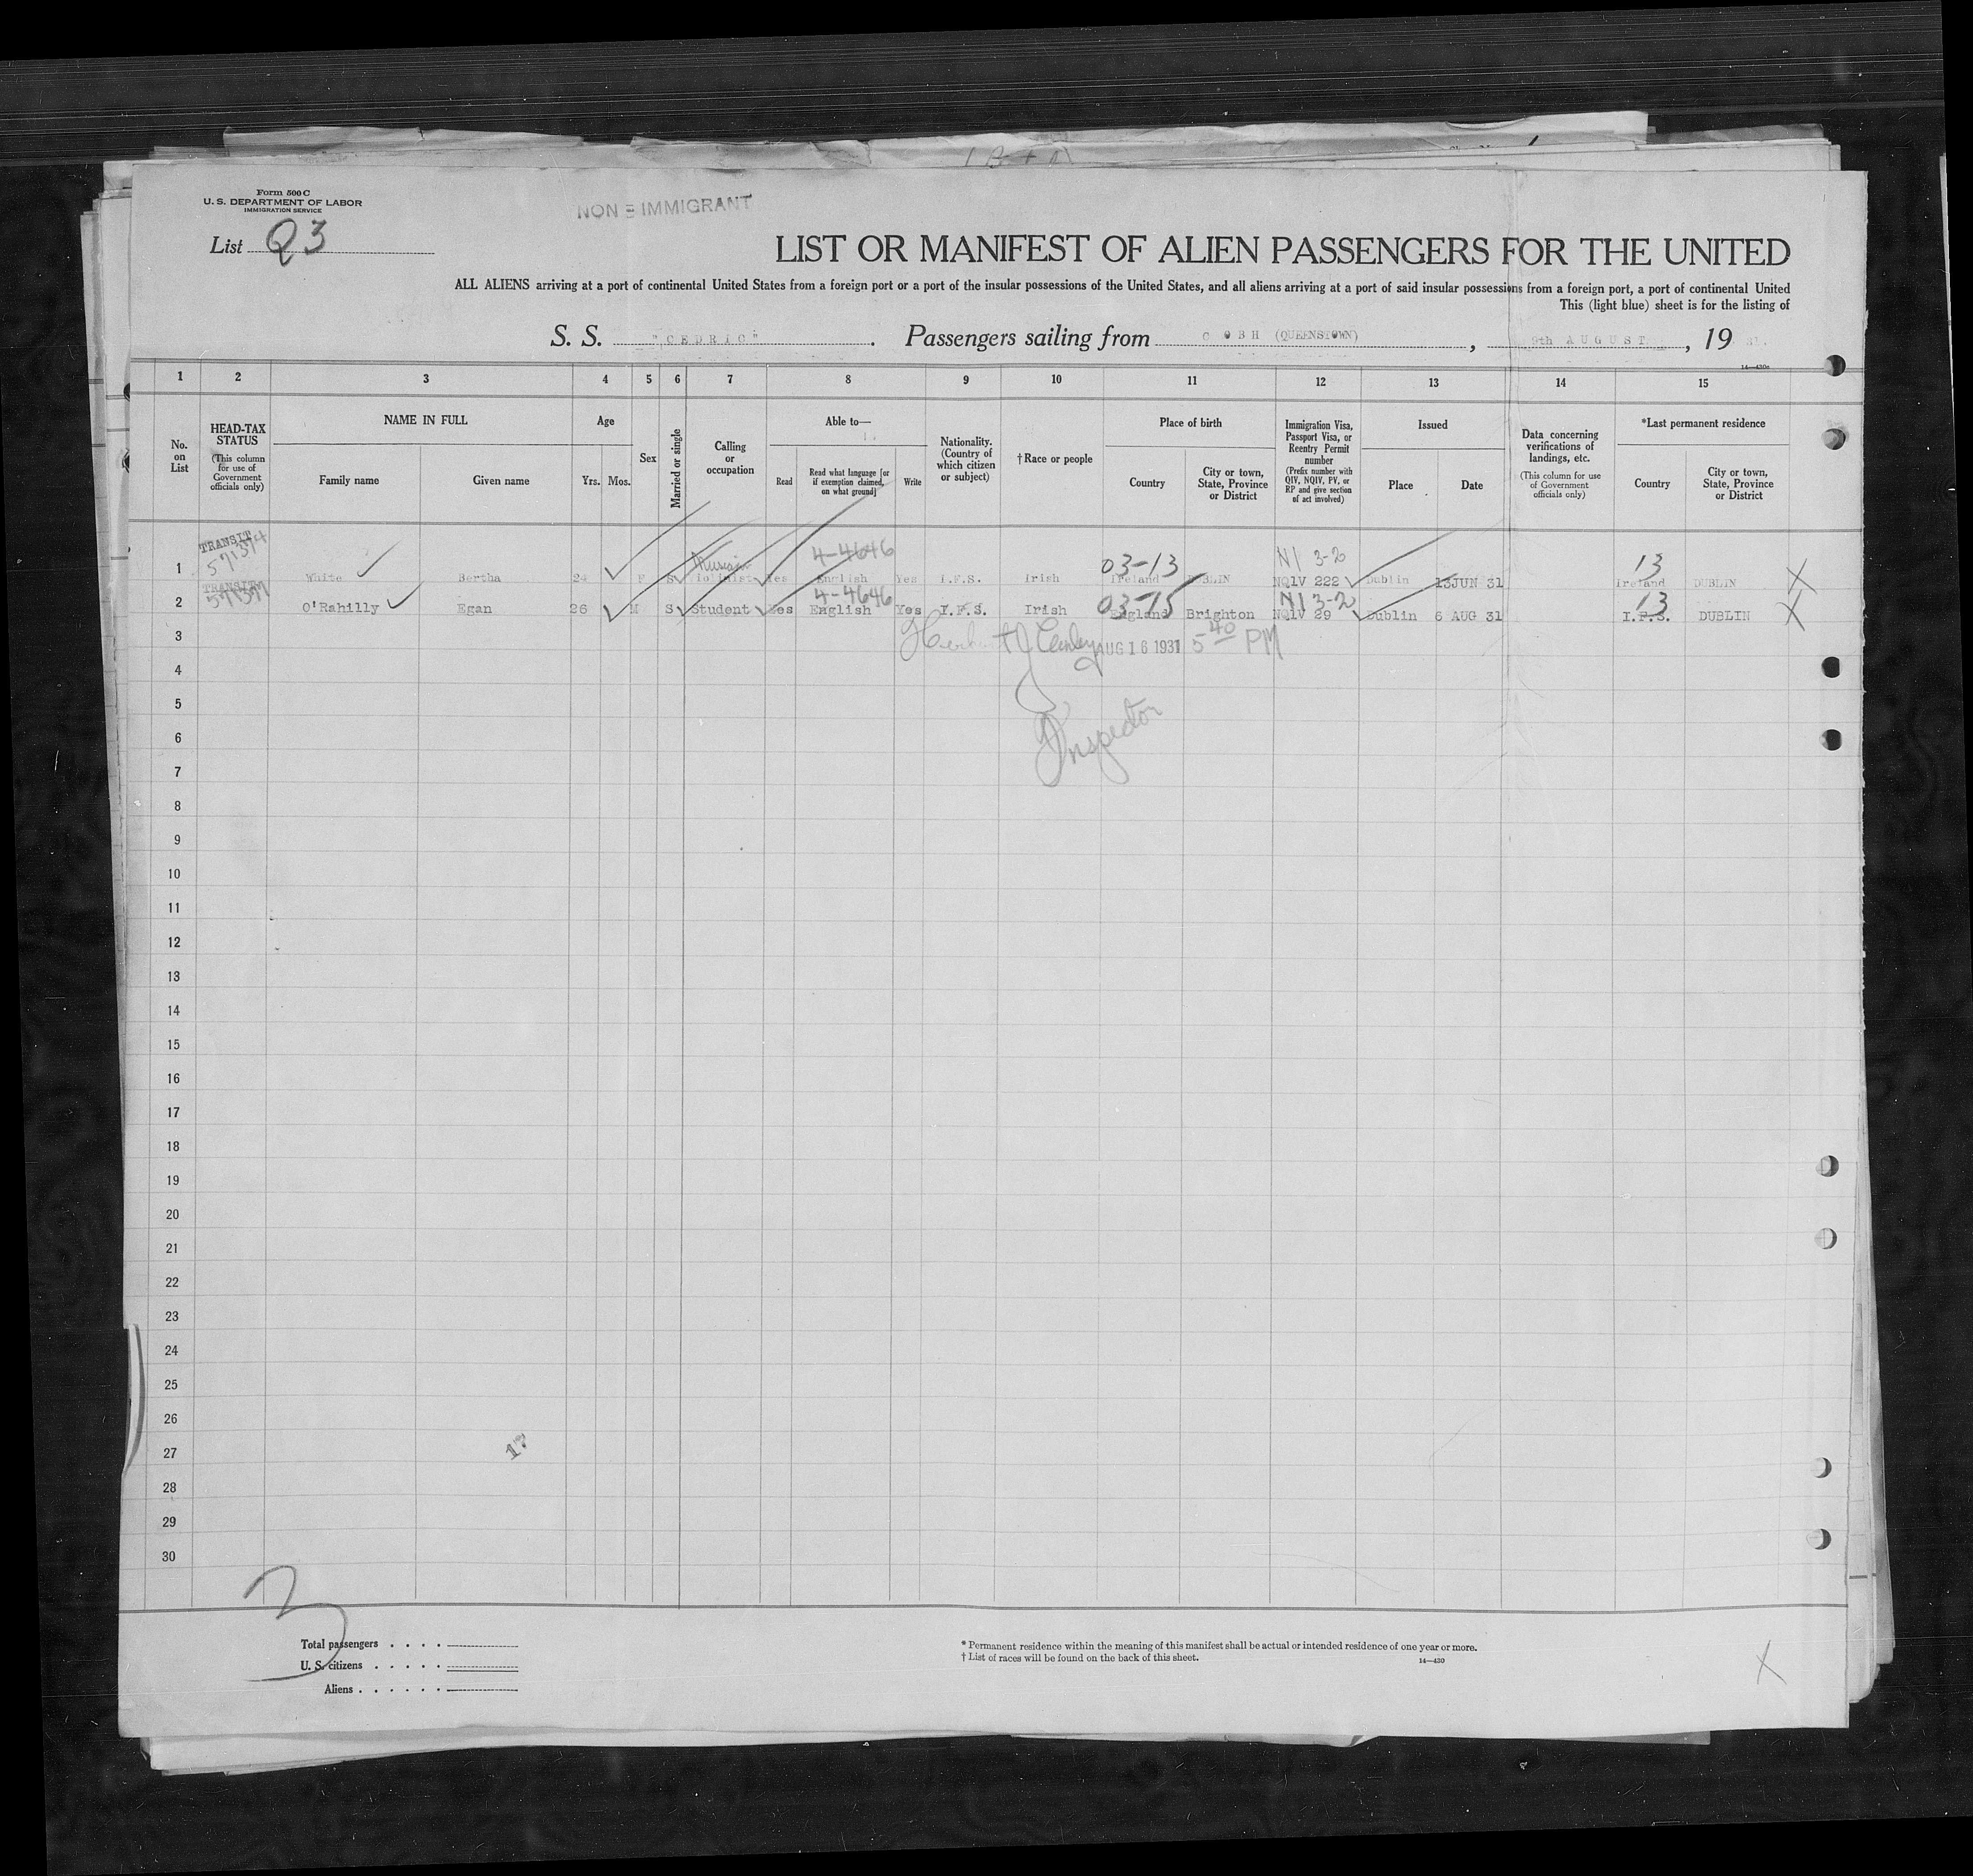 Form 500 C
U. S. DEPARTMENT OF LABOR
IMMIGRATION SERVICE
NON = IMMIGRANT
List Q3
LIST OR MANIFEST OF ALIEN PASSENGERS FOR THE UNITED
ALL ALIENS arriving at a port of continental United States from a foreign port or a port of the insular possessions of the United States, and all aliens arriving at a port of said insular possessions from a foreign port, a port of continental United
This (light blue) sheet is for the listing of
S. S. "CEDRIC". Passengers sailing from COBH (QUEENSTOWN), 9th AUGUST, 19 31.
14—430c
1 2 3 4 5 6 7 8 9 10 11 12 13 14 15
No. on List
HEAD-TAX STATUS (This column for use of Government officials only)
NAME IN FULL
Family name Given name
Age
Yrs. Mos.
Sex
Married or single
Calling or occupation
Able to—
Read Read what language [or if exemption claimed, on what ground] Write
Nationality. (Country of which citizen or subject)
† Race or people
Place of birth
Country City or town, State, Province or District
Immigration Visa, Passport Visa, or Reentry Permit number (Prefix number with QIV, NQIV, PV, or RP and give section of act involved)
Issued
Place Date
Data concerning verifications of landings, etc. (This column for use of Government officials only)
*Last permanent residence
Country City or town, State, Province or District
TRANSIT 4-4646 03-13 N1 3-2 13
1 White Bertha 24 F S Yes English Yes I.F.S. Irish Ireland DUBLIN NQ1V 222 Dublin 13JUN 31 Ireland DUBLIN X
TRANSIT 4-4646 03-15 N1 3-2 13
2 O'Rahilly Egan 26 M S Student Yes English Yes I.F.S. Irish England Brighton NQ1V 29 Dublin 6 AUG 31 I.F.S. DUBLIN X
3 AUG 16 1931 5 40 PM
4
5
Inspector
6
7
8
9
10
11
12
13
14
15
16
17
18
19
20
21
22
23
24
25
26
27 17
28
29
30
3
Total passengers . . . .
U. S. citizens . . . . .
Aliens . . . . . .
* Permanent residence within the meaning of this manifest shall be actual or intended residence of one year or more.
† List of races will be found on the back of this sheet.
14—430
X